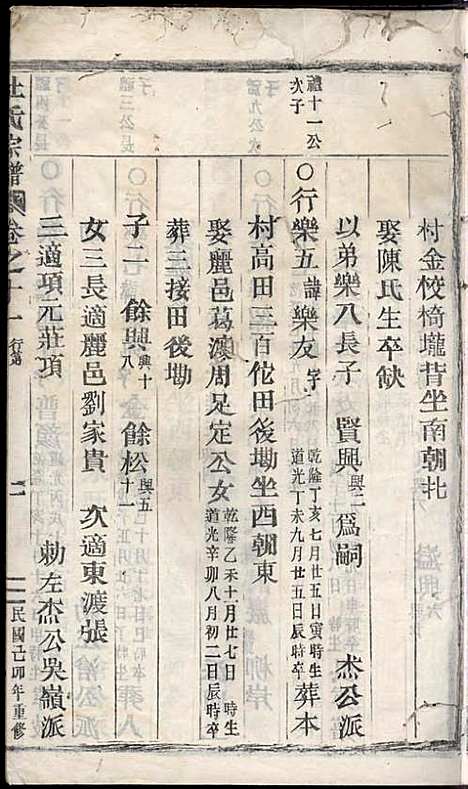 村金校椅壠背坐南朝北
娶陳氏生卒缺
以弟樂八長子 賢興與二 爲嗣 杰公派
禮十一公
次子
○行樂五諱樂友字 乾隆丁亥七月廿五日寅時生
道光丁未九月廿五日辰時卒 葬本
村高田三百佗田後坳坐西朝東
娶麗邑葛渡周足定公女 乾隆乙未十一月廿七日 時生
道光辛卯八月初二日辰時卒
葬三接田後坳
子二 餘興興十八 餘松與五十一
女三長適麗邑劉家貴 次適東渡張
三適項元莊項 勅左杰公吳嶺派
杜氏宗譜 卷之十一 行第 民國己卯年重修